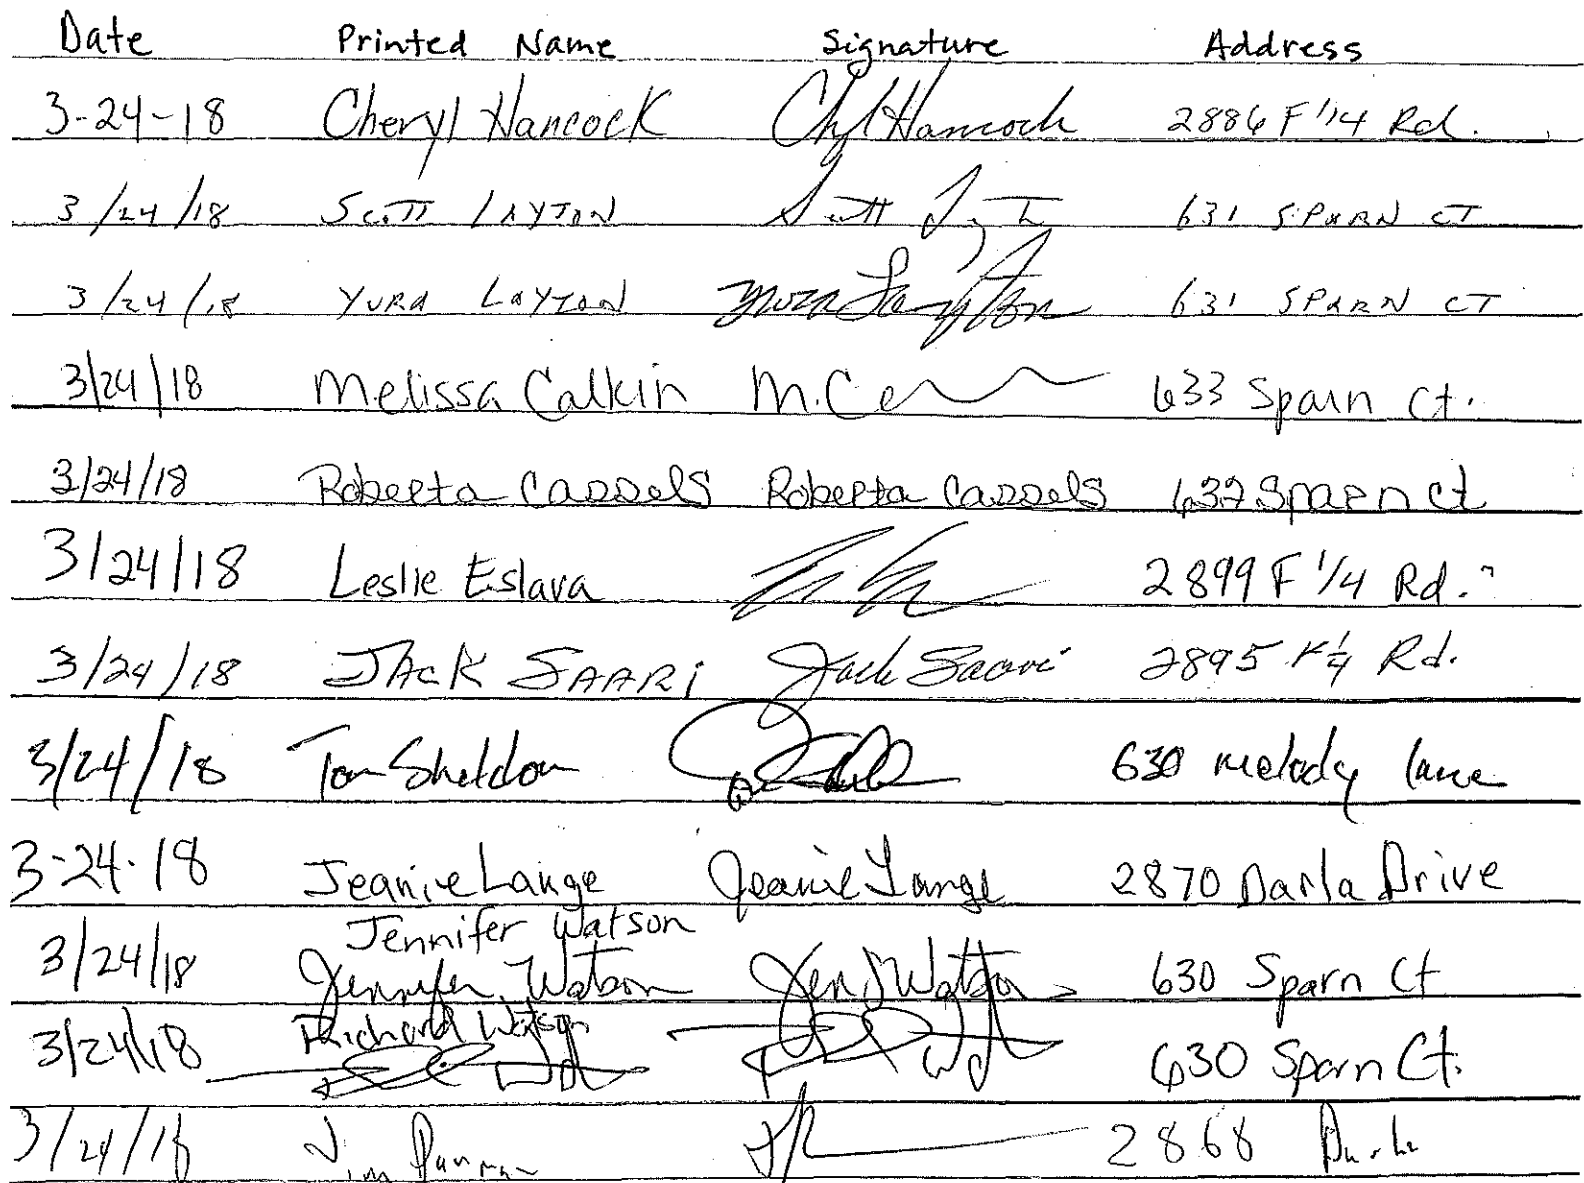 Date Printed Name Signature Address
3-24-18 Cheryl Hancock Chyl Hancock 2886 F 1/4 Rd.
3/24/18 Scott LAYTON Scott 631 SPARN CT
3/24/18 YURA LAYTON Yura Layton 631 SPARN CT
3/24/18 Melissa Calkin M. Ca 633 Sparn Ct.
3/24/18 Roberta Cassels Roberta Cassels 637 Sparn Ct
3/24/18 Leslie Eslava 2899 F 1/4 Rd.
3/24/18 JACK SAARi Jack Saari 2895 F 1/4 Rd.
3/24/18 Tom Sheldon 630 melody lane
3-24-18 Jeanie Lange Jeanie Lange 2870 Darla Drive
Jennifer Watson
3/24/18 Jennifer Watson Jen Watson 630 Sparn Ct
3/24/18 Richard Watson 630 Sparn Ct.
3/24/18 Jim 2868 Darla